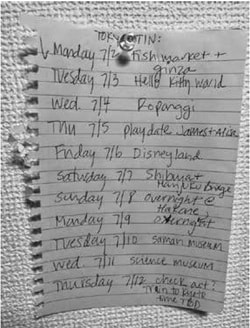 TOKYO ITIN:
Monday 7/2 fish market +
ginza
Tuesday 7/3 Hello Kitty world
Wed. 7/4 Roppanggi
Thu 7/5 playdate James + Alice
Friday 7/6 Disneyland
Saturday 7/7 Shibuya +
Harajuku Bridge
Sunday 7/8 overnight @
Hakone
Monday 7/9 overnight
Tuesday 7/10 samari museum
Wed. 7/11 science museum
Thursday 7/12 check out?
Train to Kyoto
time TBD